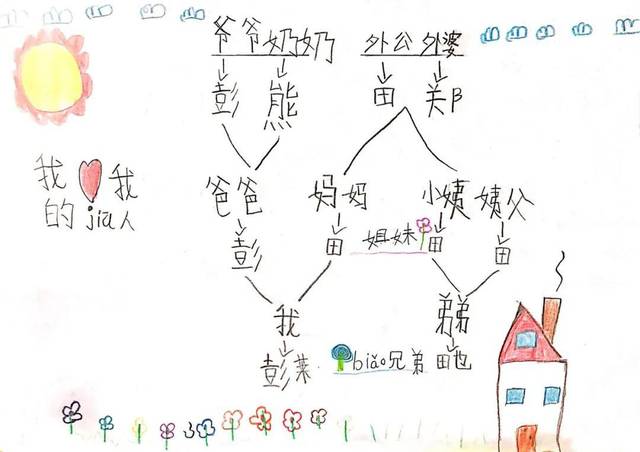 爷爷奶奶 外公外婆
彭 熊 田 关阝
我 我
的jiā人
爸爸 妈妈 小姨 姨父
彭 田 姐妹 田 田
我 弟弟
彭莱 biǎo兄弟 田也